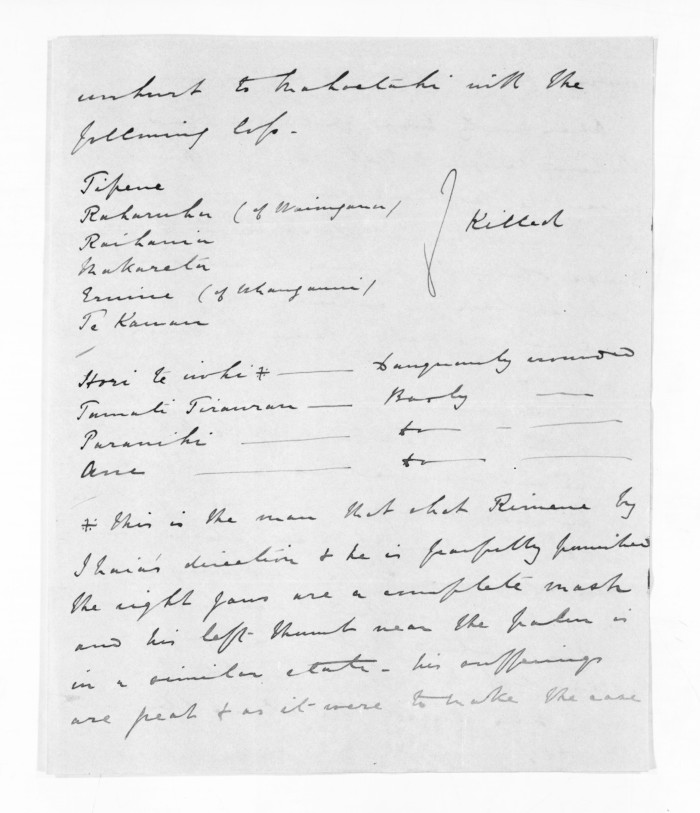 unhurt to Mahoetahi with the
following loss -
Tipene
Raharuhu (of Waiongana)
Raihania
Makareta
Eruini (of Whanganui)
Te Kanau
Killed
Hori te iwhi * — Dangerously wounded
Tamati Tirauran — Badly —
Paranihi — do — —
Ane — do — —
* This is the man that shot Rimene by
Ihaia's direction & he is fearfully punished
the right jaws are a complete mash
and his left thumb near the palm is
in a similar state - his sufferings
are great & as it were to make the case